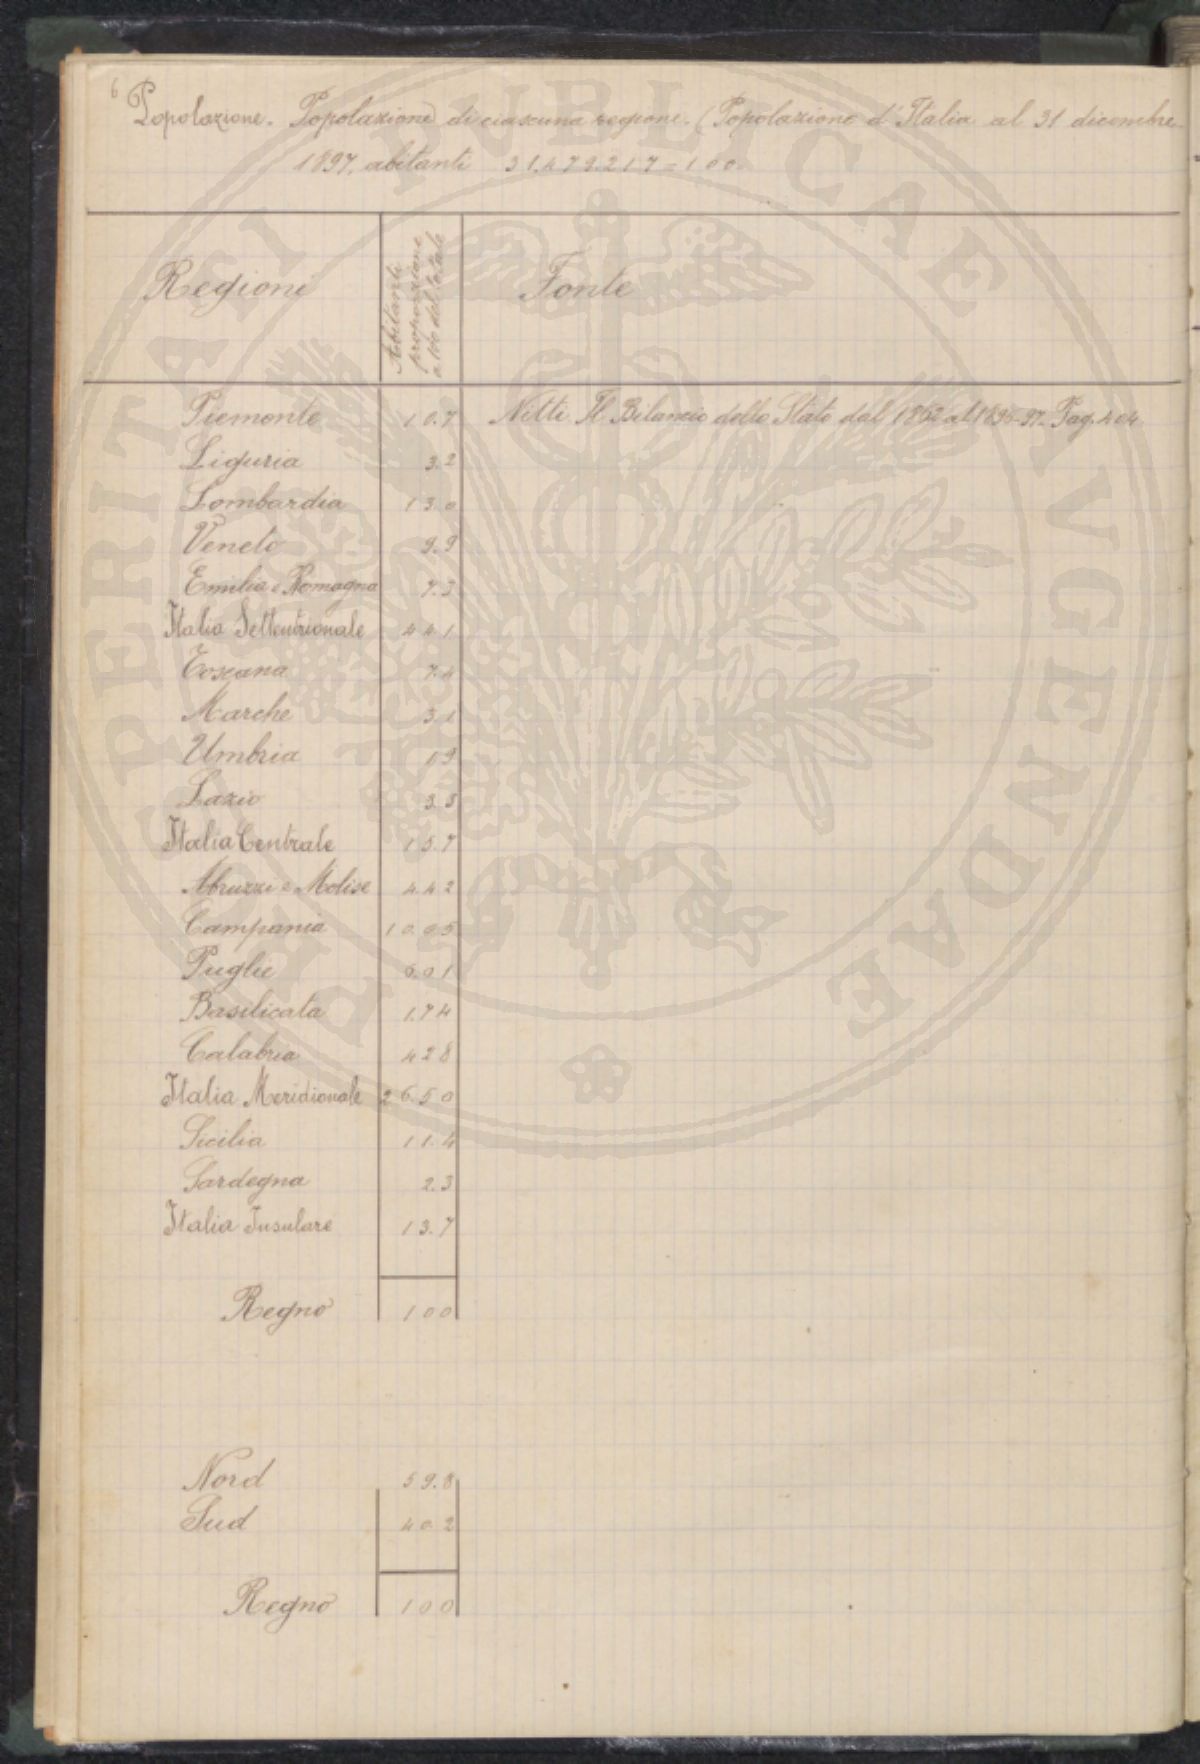 6
Popolazione. Popolazione di ciascuna regione. (Popolazione d'Italia al 31 dicembre
1897, abitanti 31.479.217 = 100.
Regioni
Abitanti
proporzione
a 100 del totale
Fonte
Piemonte 10.7 Nitti. Il Bilancio dello Stato dal 1862 al 1896-97. Pag. 404
Liguria 3.2
Lombardia 13.0
Veneto 9.9
Emilia e Romagna 7.3
Italia Settentrionale 44.1
Toscana 7.4
Marche 3.1
Umbria 1.9
Lazio 3.3
Italia Centrale 15.7
Abruzzi e Molise 4.42
Campania 10.05
Puglie 6.01
Basilicata 1.74
Calabria 4.28
Italia Meridionale 26.50
Sicilia 11.4
Sardegna 2.3
Italia Insulare 13.7
Regno 100
Nord 59.8
Sud 40.2
Regno 100
PROSPERITASI PUBLICAE AVGENDAE